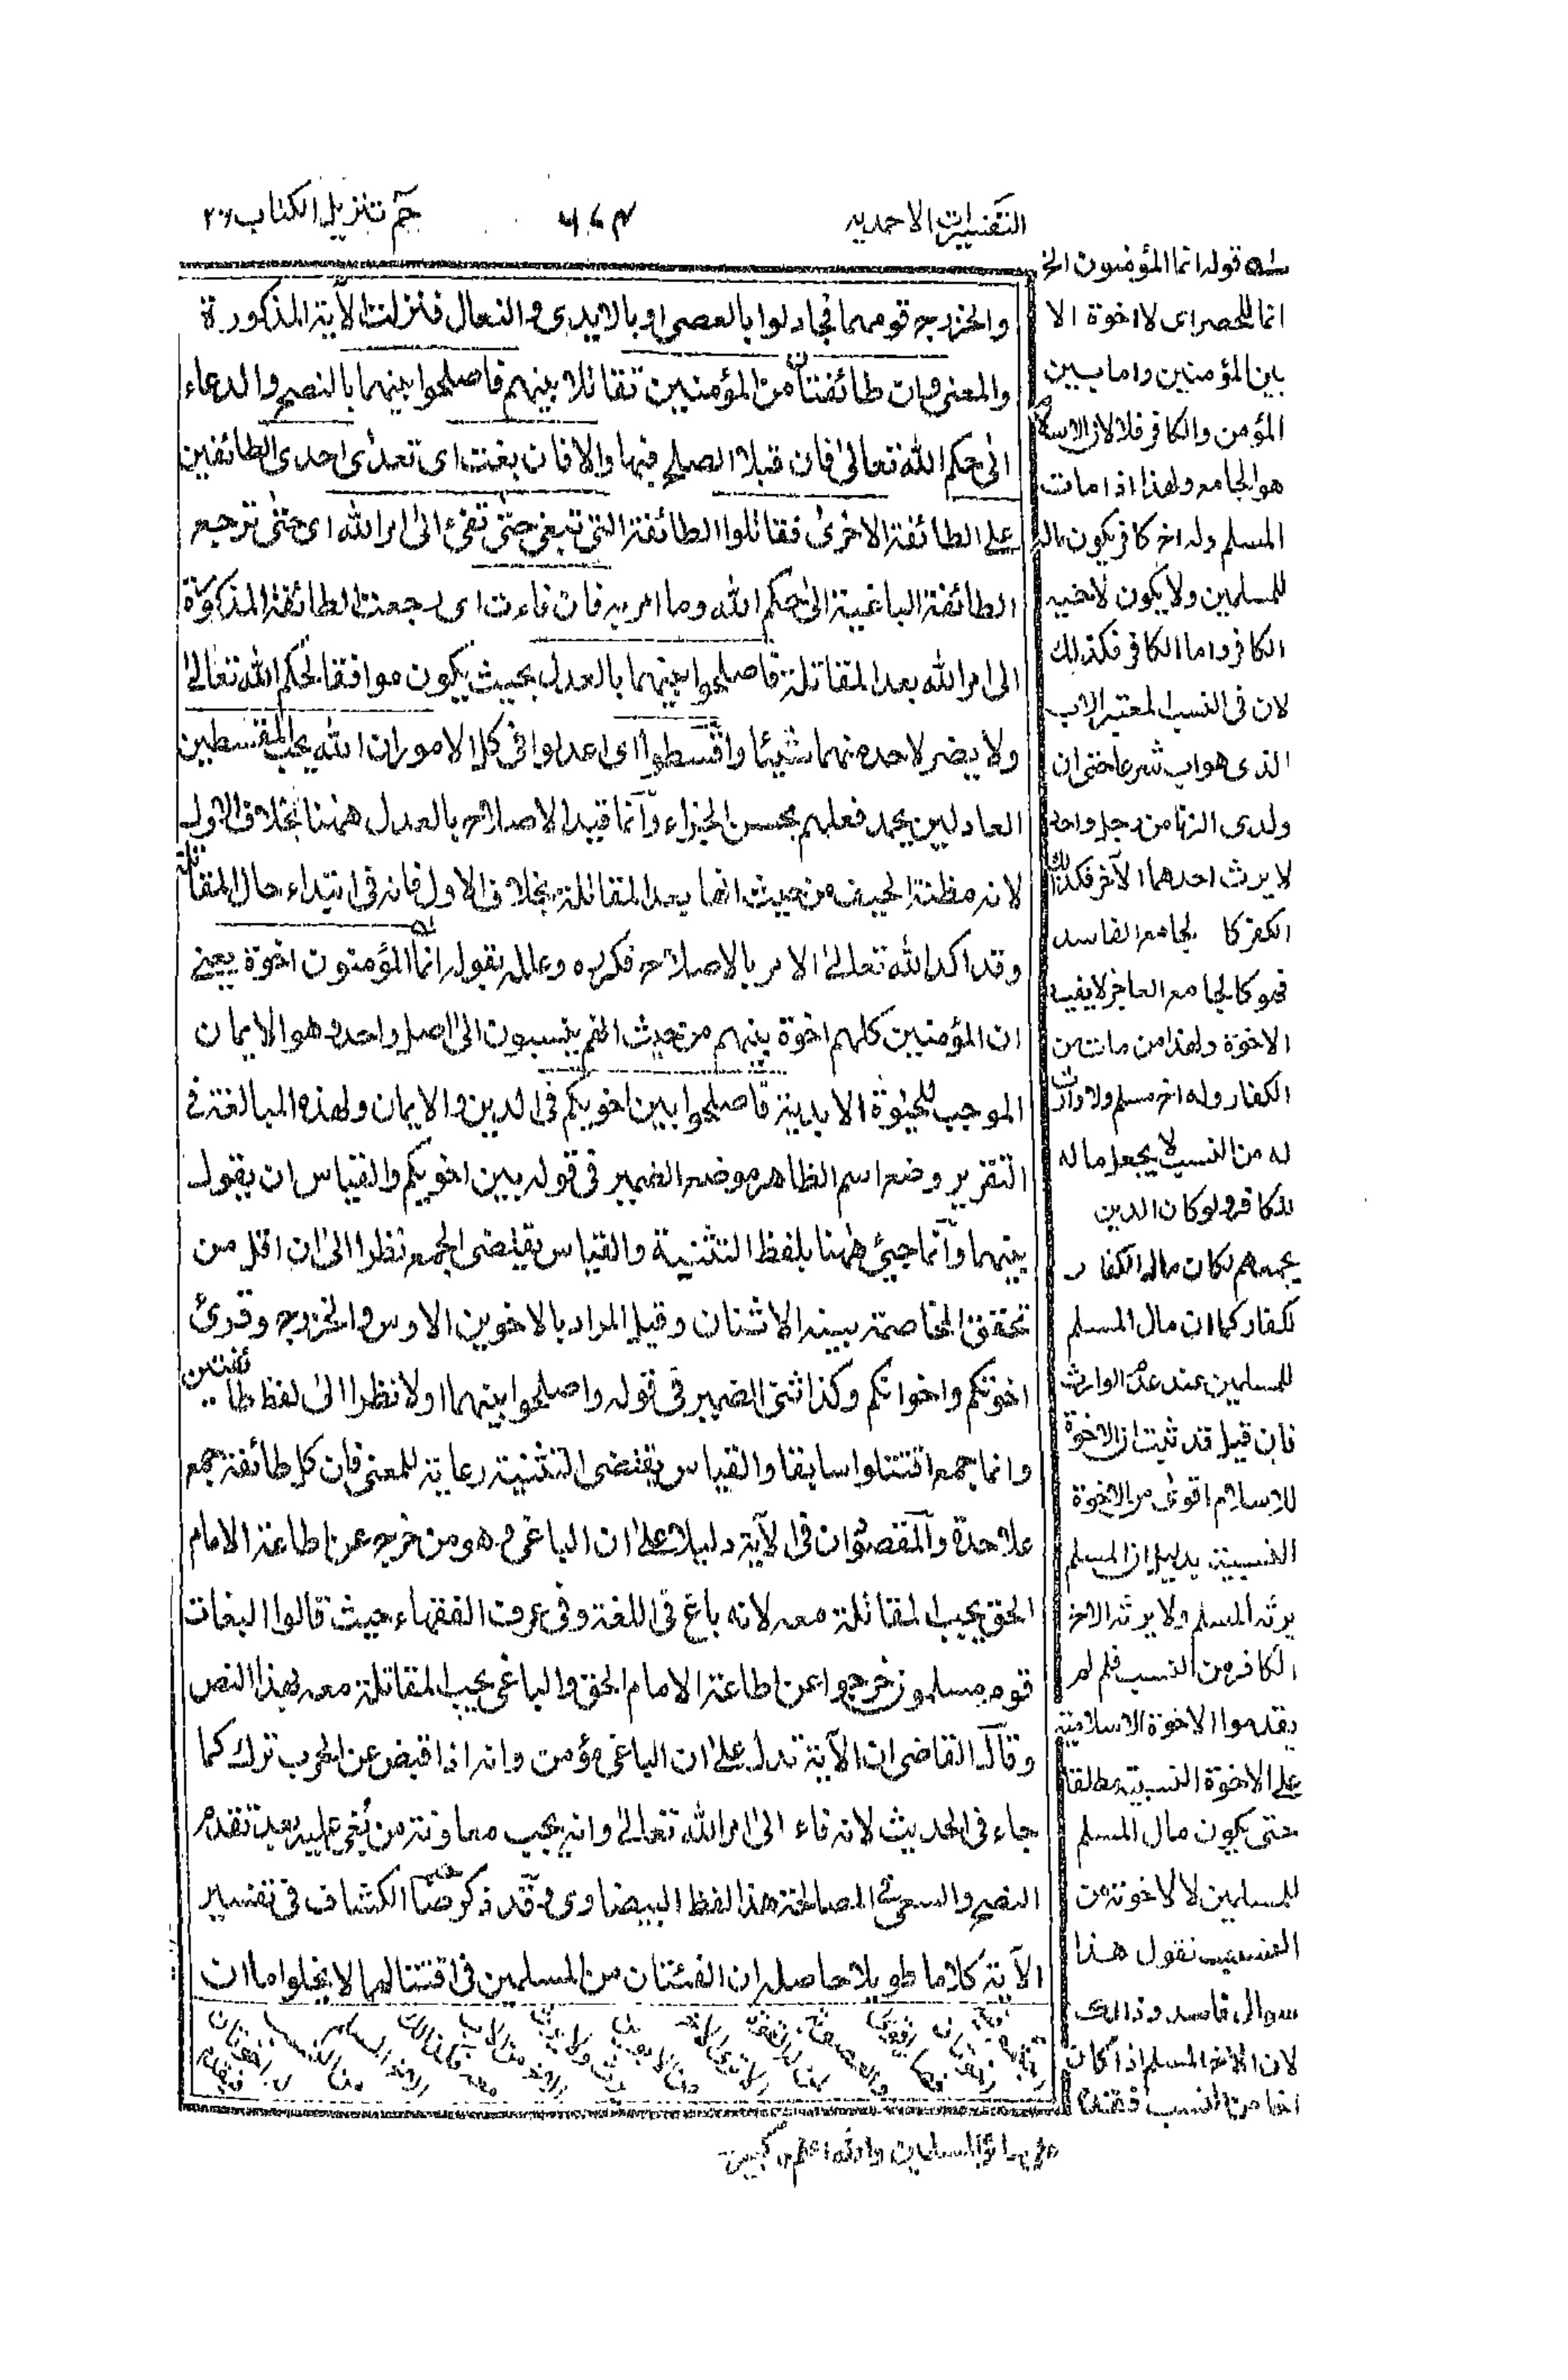 التفسيرات الاحمديه
حم تنزيل الكتاب ٢٦
والخزرج قومهما فجادلوا بالعصى او بالايدى والنعال فنزلت الآية المذكورة
والمعنى وان طائفتان من المؤمنين تقاتلا بينهم فاصلحوا بينهما بالنصح والدعاء
الى حكم الله تعالى فان قبلا الصلح فبها والا فان بغت اى تعدى احدى الطائفين
على الطائفة الاخرى فقاتلوا الطائفة التى تبغى حتى تفئ الى امر الله اى حتى ترجع
الطائفة الباغية الى حكم الله وما امر به فان فاءت اى رجعت الطائفة المذكورة
الى امر الله بعد المقاتلة فاصلحوا بينهما بالعدل بحيث يكون موافقا لحكم الله تعالى
ولا يضر لاحد منهما شيئا واقسطوا اى اعدلوا فى كل الامور ان الله يحب المقسطين
العادلين يحمد فعلهم بحسن الجزاء وانما قيد الاصلاح بالعدل ههنا بخلاف الاول
لانه مظنة الحيف من حيث انها بعد المقاتلة بخلاف الاول فانه فى ابتداء حال المقاتلة
وقد اكد الله تعالى الامر بالاصلاح فكرره وعلله بقوله انما المؤمنون اخوة يعنى
ان المؤمنين كلهم اخوة بينهم من حيث انهم ينسبون الى اصل واحد وهو الايمان
الموجب للحيوة الابدية فاصلحوا بين اخويكم فى الدين والايمان ولهذه المبالغة فى
التقرير وضع اسم الظاهر موضع الضمير فى قوله بين اخويكم والقياس ان يقول
بينهما وانما جيئ ههنا بلفظ التثنية والقياس يقتضى الجمع نظرا الى ان اقل من
تحقق المخاصمة بينه الاثنان وقيل المراد بالاخوين الاوس والخزرج وقرئ
اخوتكم واخوانكم وكذا ثنى الضمير فى قوله واصلحوا بينهما اولا نظرا الى لفظ طائفتين
وانما جمع اقتتلوا سابقا والقياس يقتضى التثنية رعاية للمعنى فان كل طائفة جمع
علاحدة والمقصود ان فى الآية دليلا على ان الباغى وهو من خرج عن اطاعة الامام
الحق يجب المقاتلة معه لانه باغ فى اللغة وفى عرف الفقهاء حيث قالوا البغات
قوم مسلمون خرجوا عن اطاعة الامام الحق والباغى يجب المقاتلة معه بهذا النص
وقال القاضى ان الآية تدل على ان الباغى مؤمن وانه اذا قبض عن الحرب ترك كما
جاء فى الحديث لانه فاء الى امر الله تعالى وانه يجب معاونة من بُغى عليه بعد تقدم
النصح والسعى فى المصالحة هذا لفظ البيضاوى وقد ذكر صاحب الكشاف فى تفسير
الآية كلاما طويلا حاصله ان الفئتان من المسلمين فى اقتتالهما لا يخلوا ما ان
له قوله انما المؤمنون الخ
انما للحصر اى لا اخوة الا
بين المؤمنين واما بين
المؤمن والكافر فلا لان الاسلام
هو الجامع ولهذا اذا مات
المسلم وله اخ كافر يكون ماله
للمسلمين ولا يكون لاخيه
الكافر واما الكافر فكذلك
لان فى النسب المعتبر الاب
الذى هو اب شرعا حتى ان
ولدى الزنا من رجل واحد
لا يرث احدهما الآخر فكذلك
الكفر كا لجامع الفاسد
فهو كالجامع العاجز لا يفيد
الاخوة ولهذا من مات من
الكفار وله اخ مسلم ولا وارث
له من النسب لا يجعل ماله
للكافر ولو كان الدين
يجمعهم لكان مال الكفار
لكفار كما ان مال المسلم
للمسلمين عند عدم الوارث
فان قيل قد ثبت ان الاخوة
للاسلام اقوى من الاخوة
النسبية بدليل ان المسلم
يرثه المسلم ولا يرثه الاخ
الكافر من النسب فلم لم
يقدموا الاخوة الاسلامية
على الاخوة النسبية مطلقا
حتى يكون مال المسلم
للمسلمين لا لاخوته من
النسب نقول هذا
سوال فاسد وذالك
لان الاخ المسلم اذا كان
اخا من النسب فقد
والله اعلم كبير